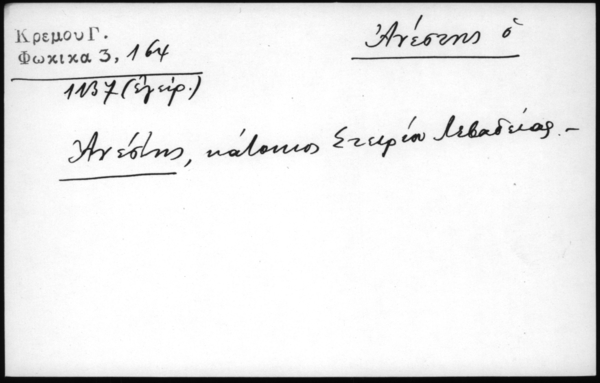 Κρεμου Γ.
Φωκικα 3, 164
1137 (ἐγείρ.)
Ἀνέστης ὁ
Ἀνέστης, κάτοικος Στειρίου Λεβαδείας.–